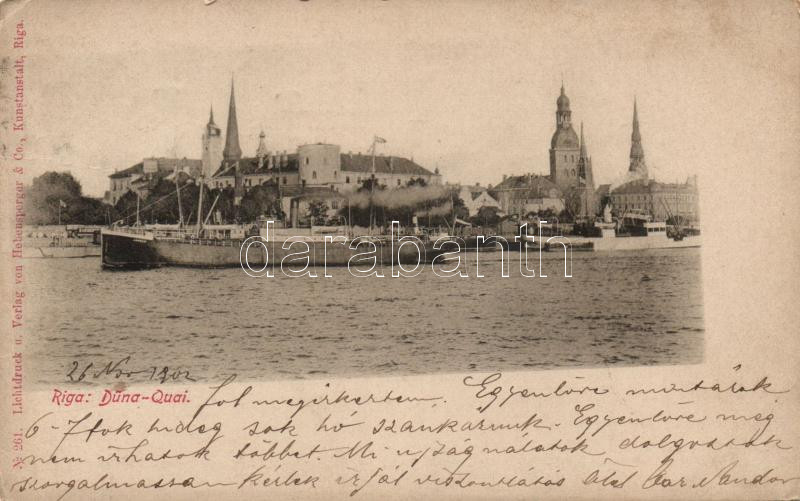 № 261. Lichtdruck u. Verlag von Hebensperger & Co., Kunstanstalt, Riga.
darabanth
26 Nov 1902
Riga: Düna-Quai.
Jol megirkertem. Egyenlöre mintárok
6- Ittok hideg sok hó szankarunk. Egyenlöre még
nem irhatok többet. Mi ujság nálatok dolgoztok
szorgalmassan kérlek irjál viszontlátós ölel